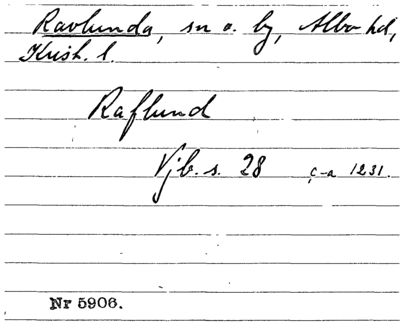 Ravlunda, sn o. by, Albo hd,
Krist. l.
Raflund
Vjb. s. 28 c-a 1231.
Nr 5906.